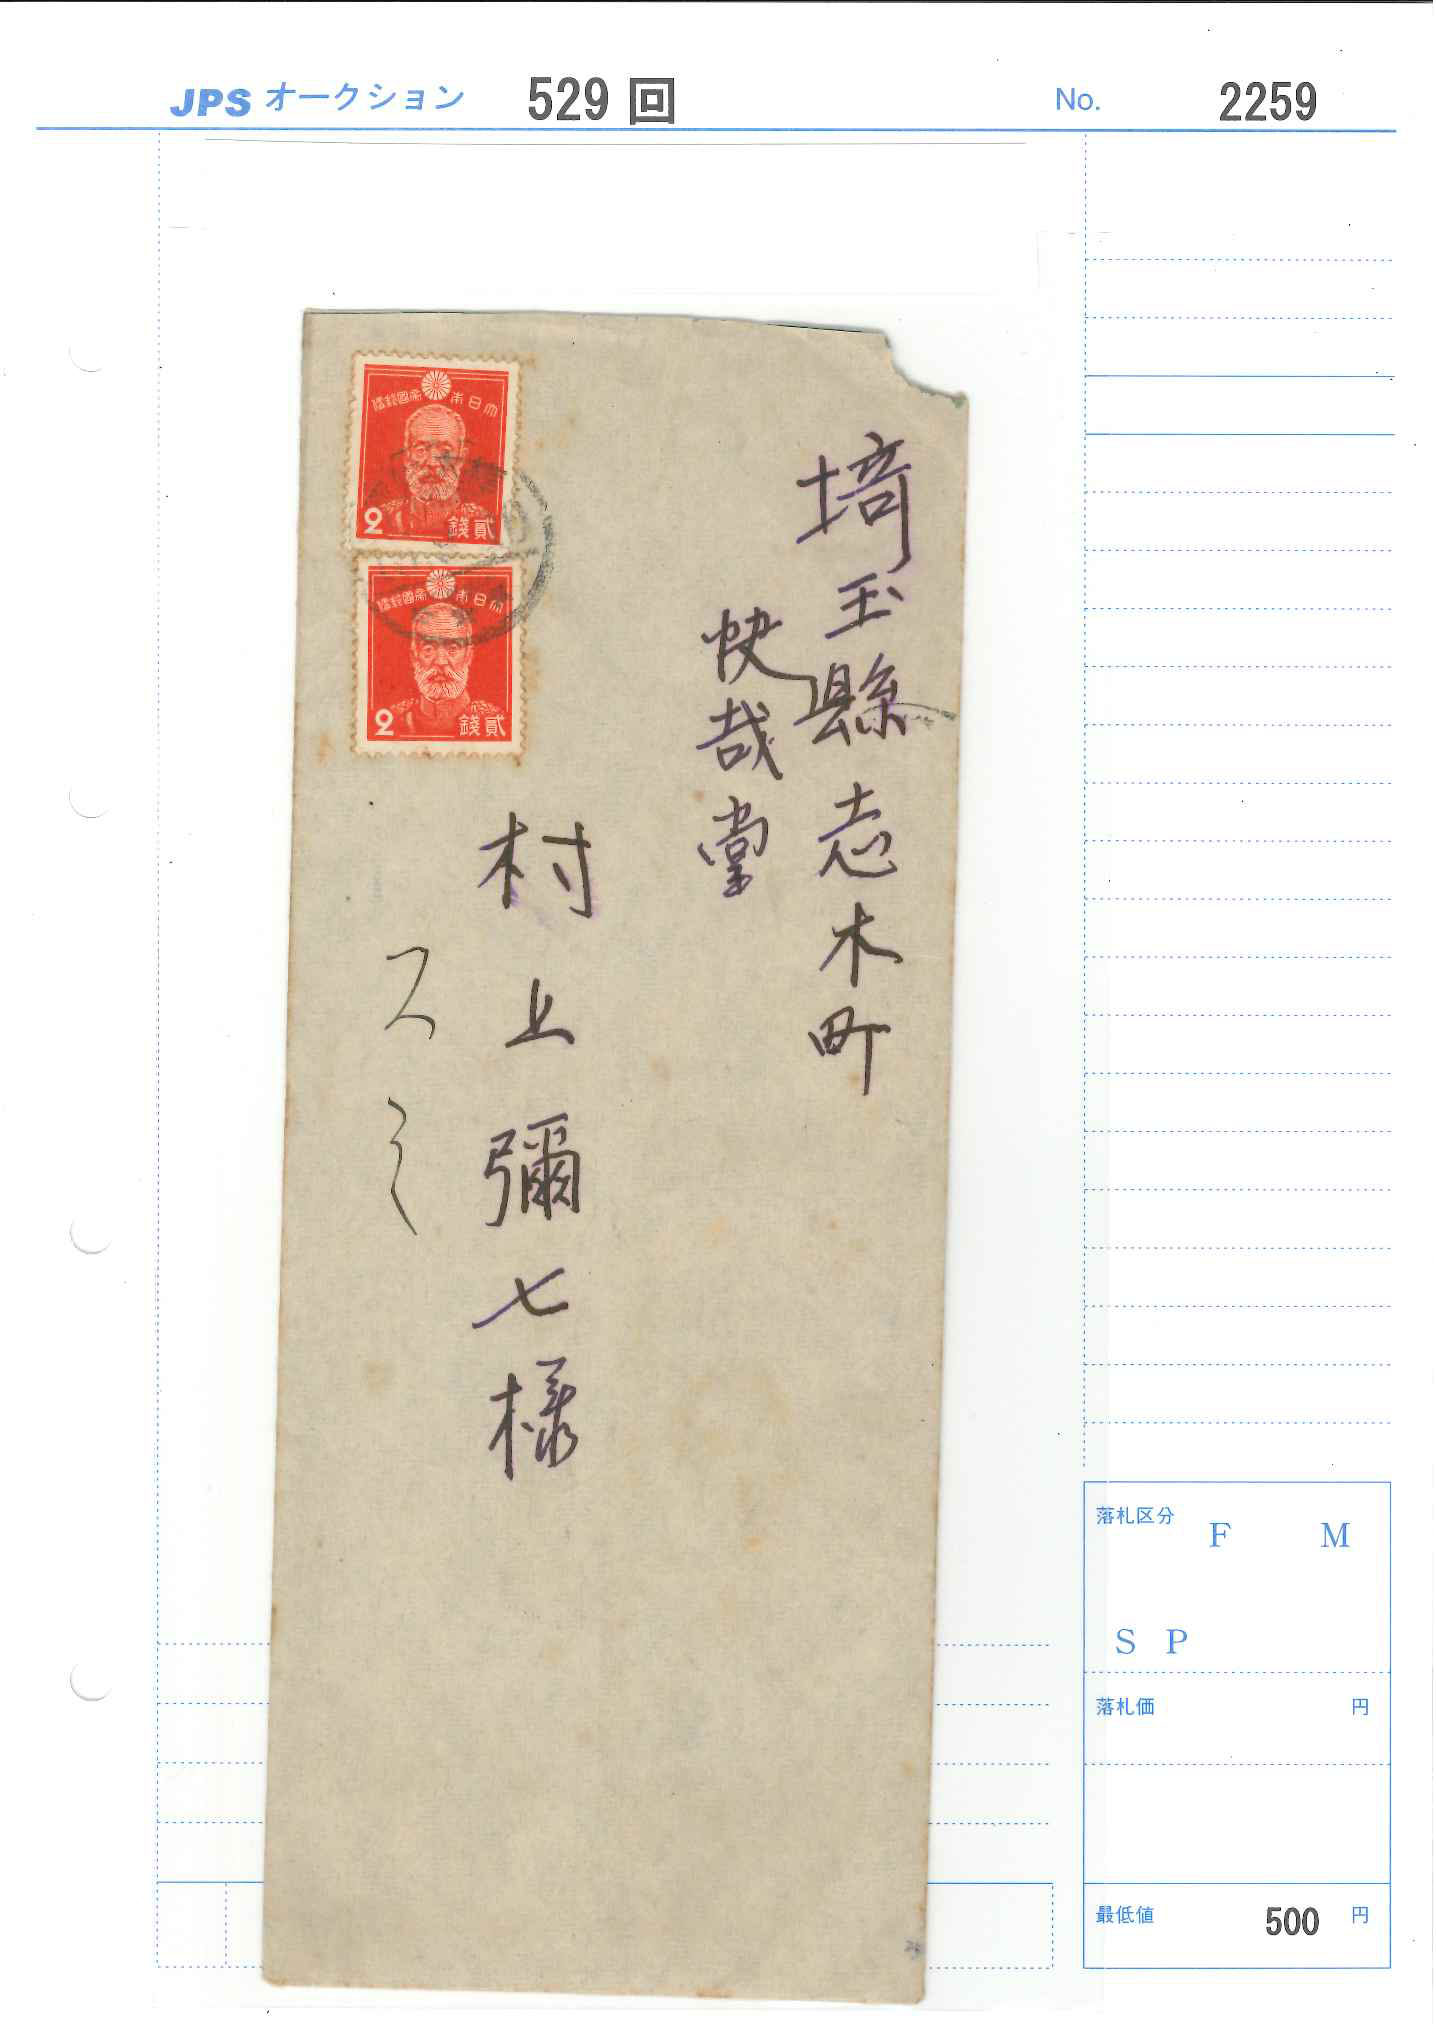 JPS オークション 529 回 No. 2259
大日本帝國郵便
2 貳錢
大日本帝國郵便
2 貳錢
埼玉縣志木町
快哉堂
村上彌七様
落札区分 F M
S P
落札価 円
最低値 500 円